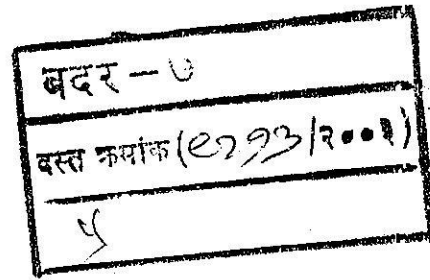 बदर - ७
दस्त क्रमांक (९७१३/२००१)
५